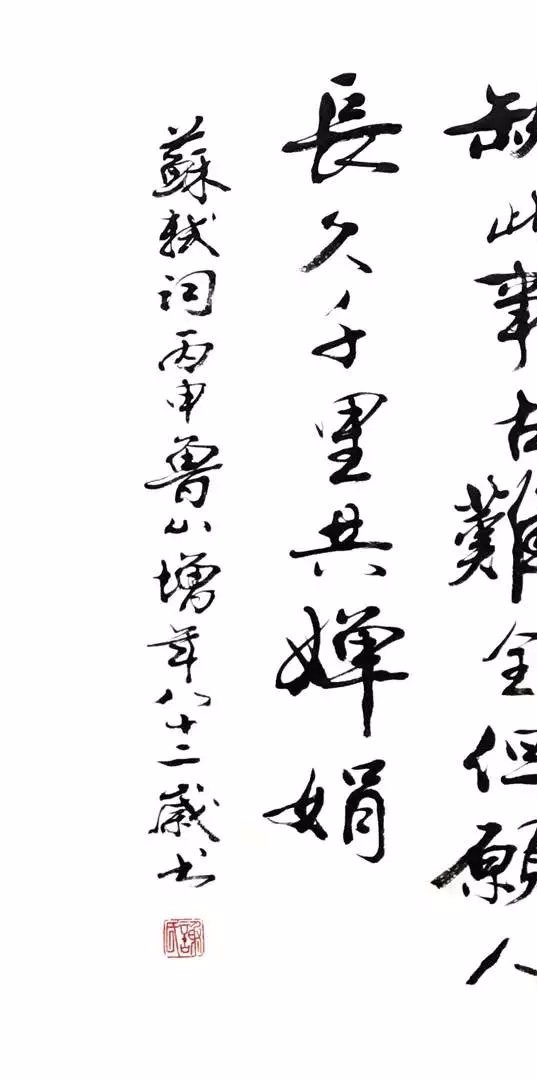 缺此事古難全但願人
長久千里共嬋娟
蘇軾詞丙申魯山增年八十二歲書
謝氏